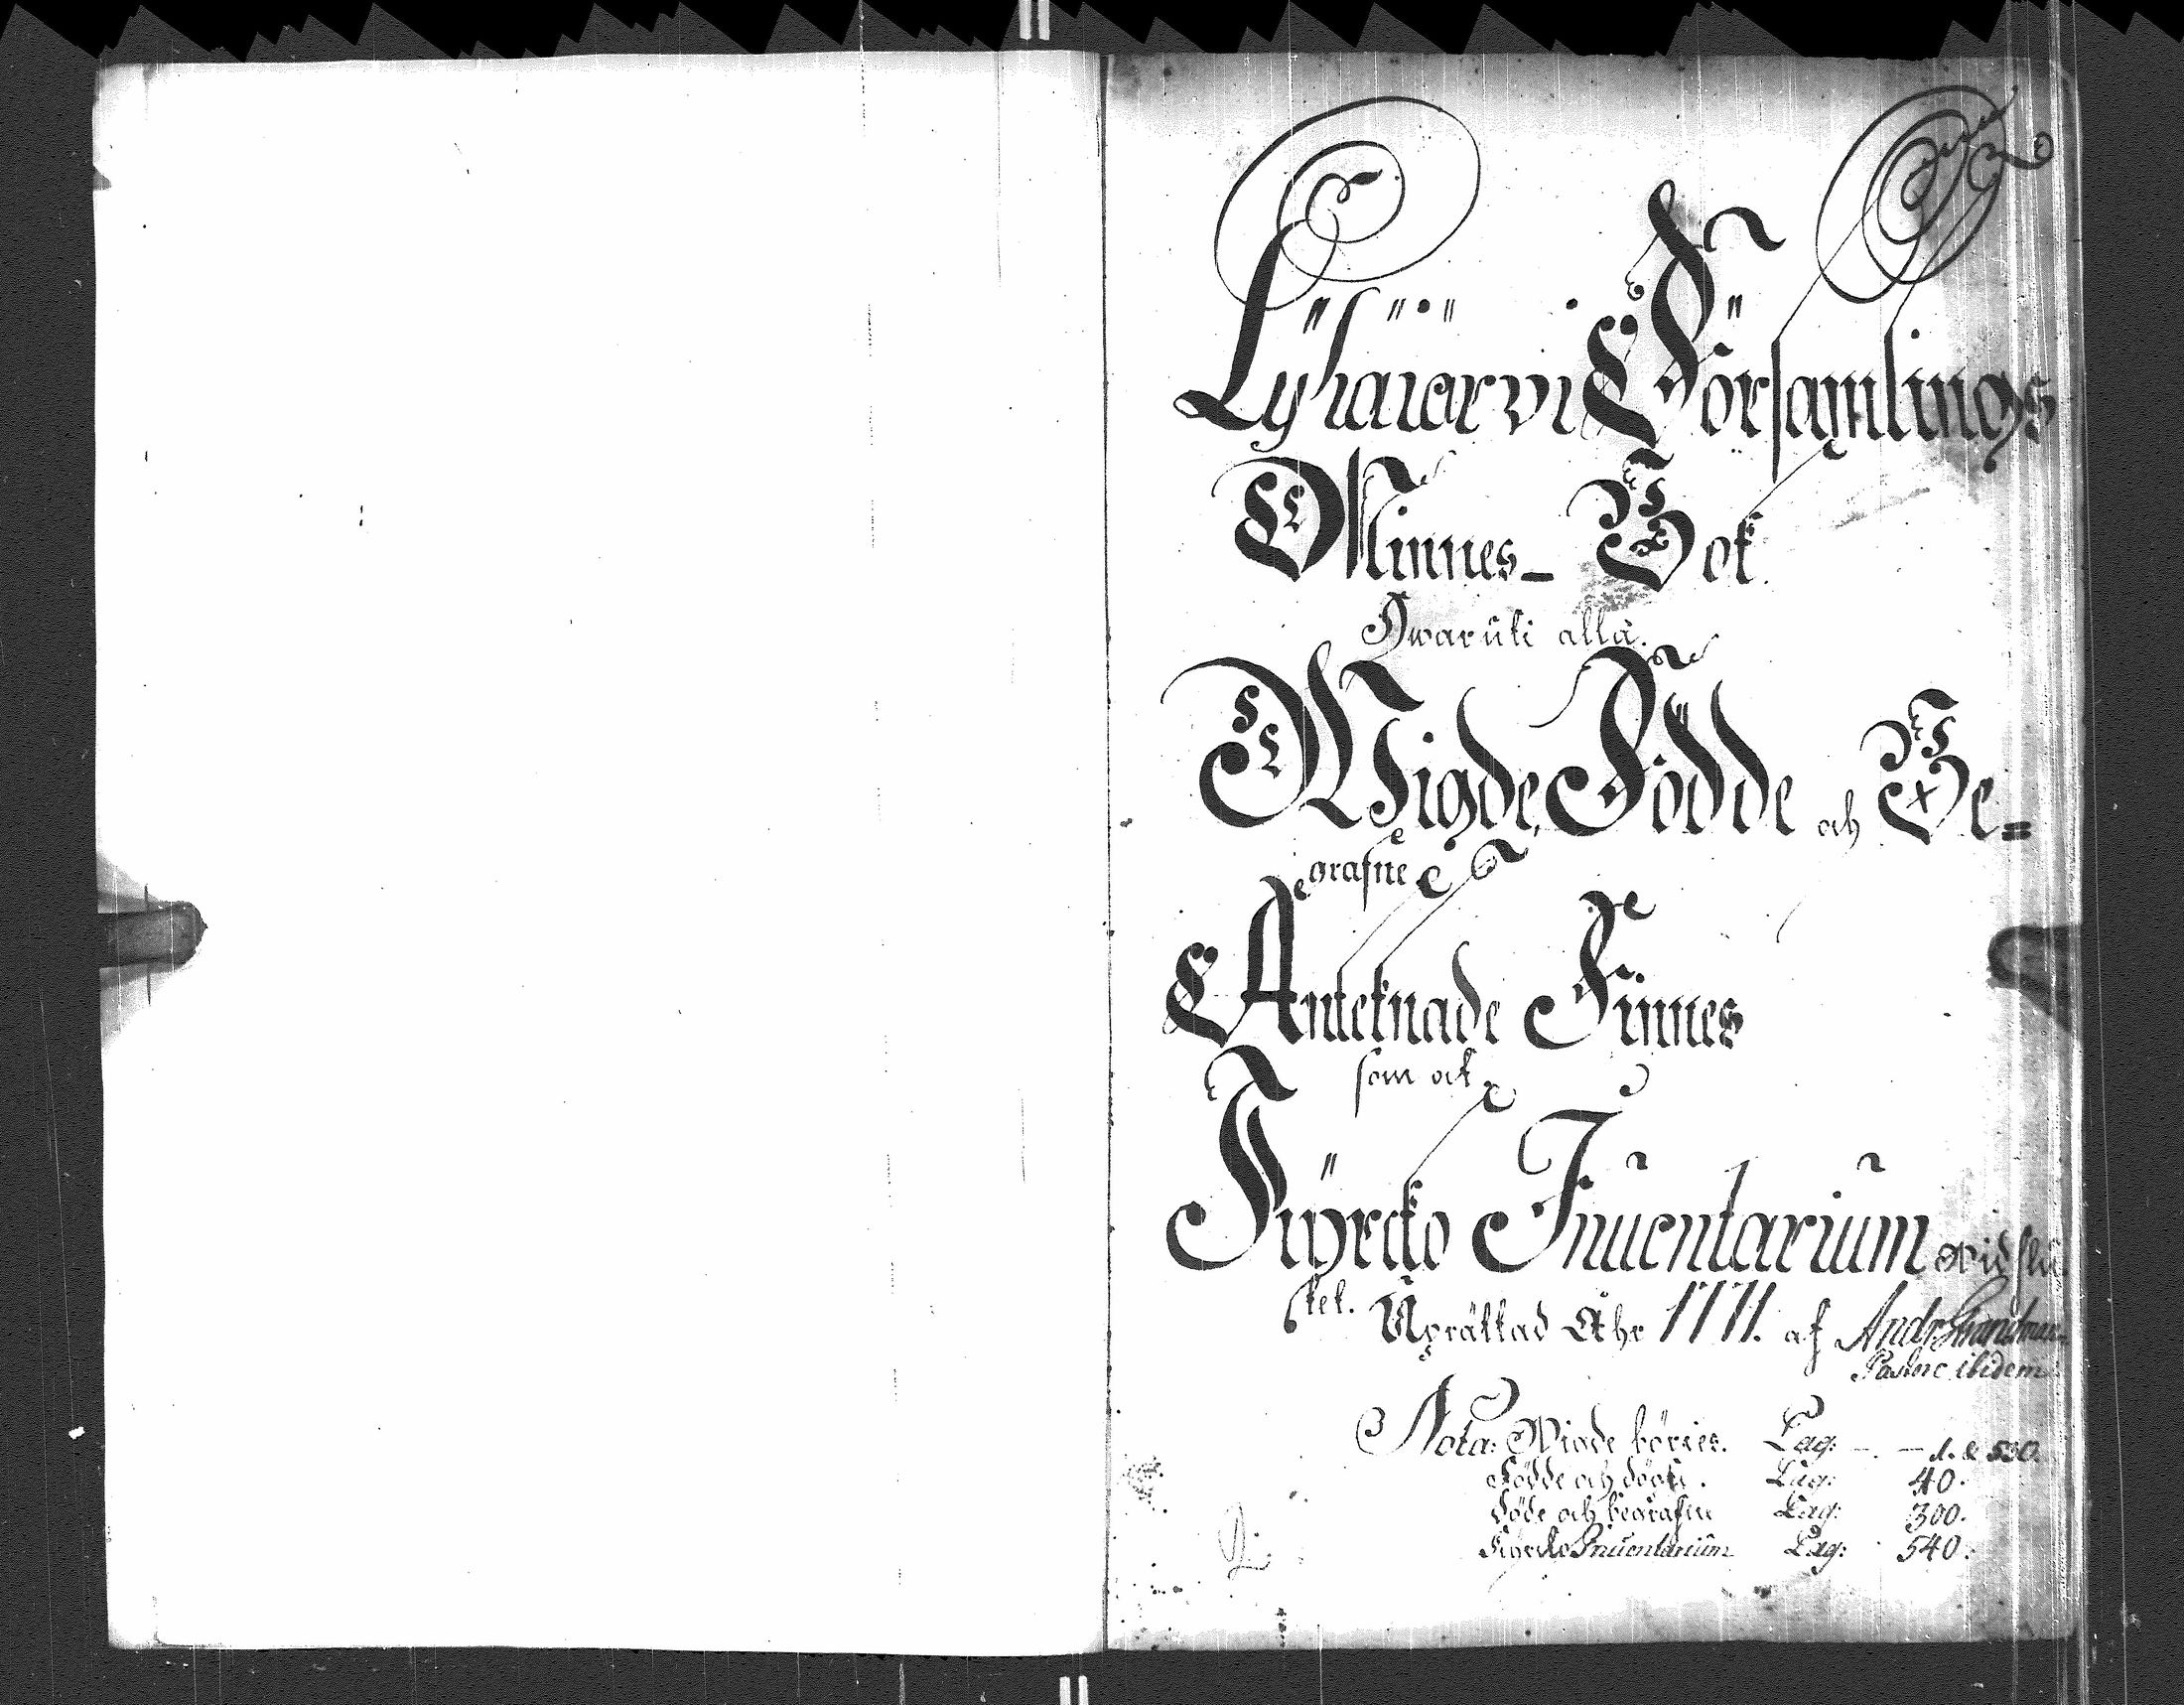 Pyhäjärvi Församlings
Minnes- Bok
Hwaruti alla
Wigde, Födde och Be=
grafne
Anteknade Finnes
som ock
Kyrcko Inventarium wid slu
tet. Uprättad Åhr 1771. af Andr
Pastore ibidem
Nota: Wigde börjes. Pag: — — 1. & 530.
Födde och döpte. Pag: 40.
Döde och begrafne Pag: 300.
Kyrcko Inventarium Pag: 540.